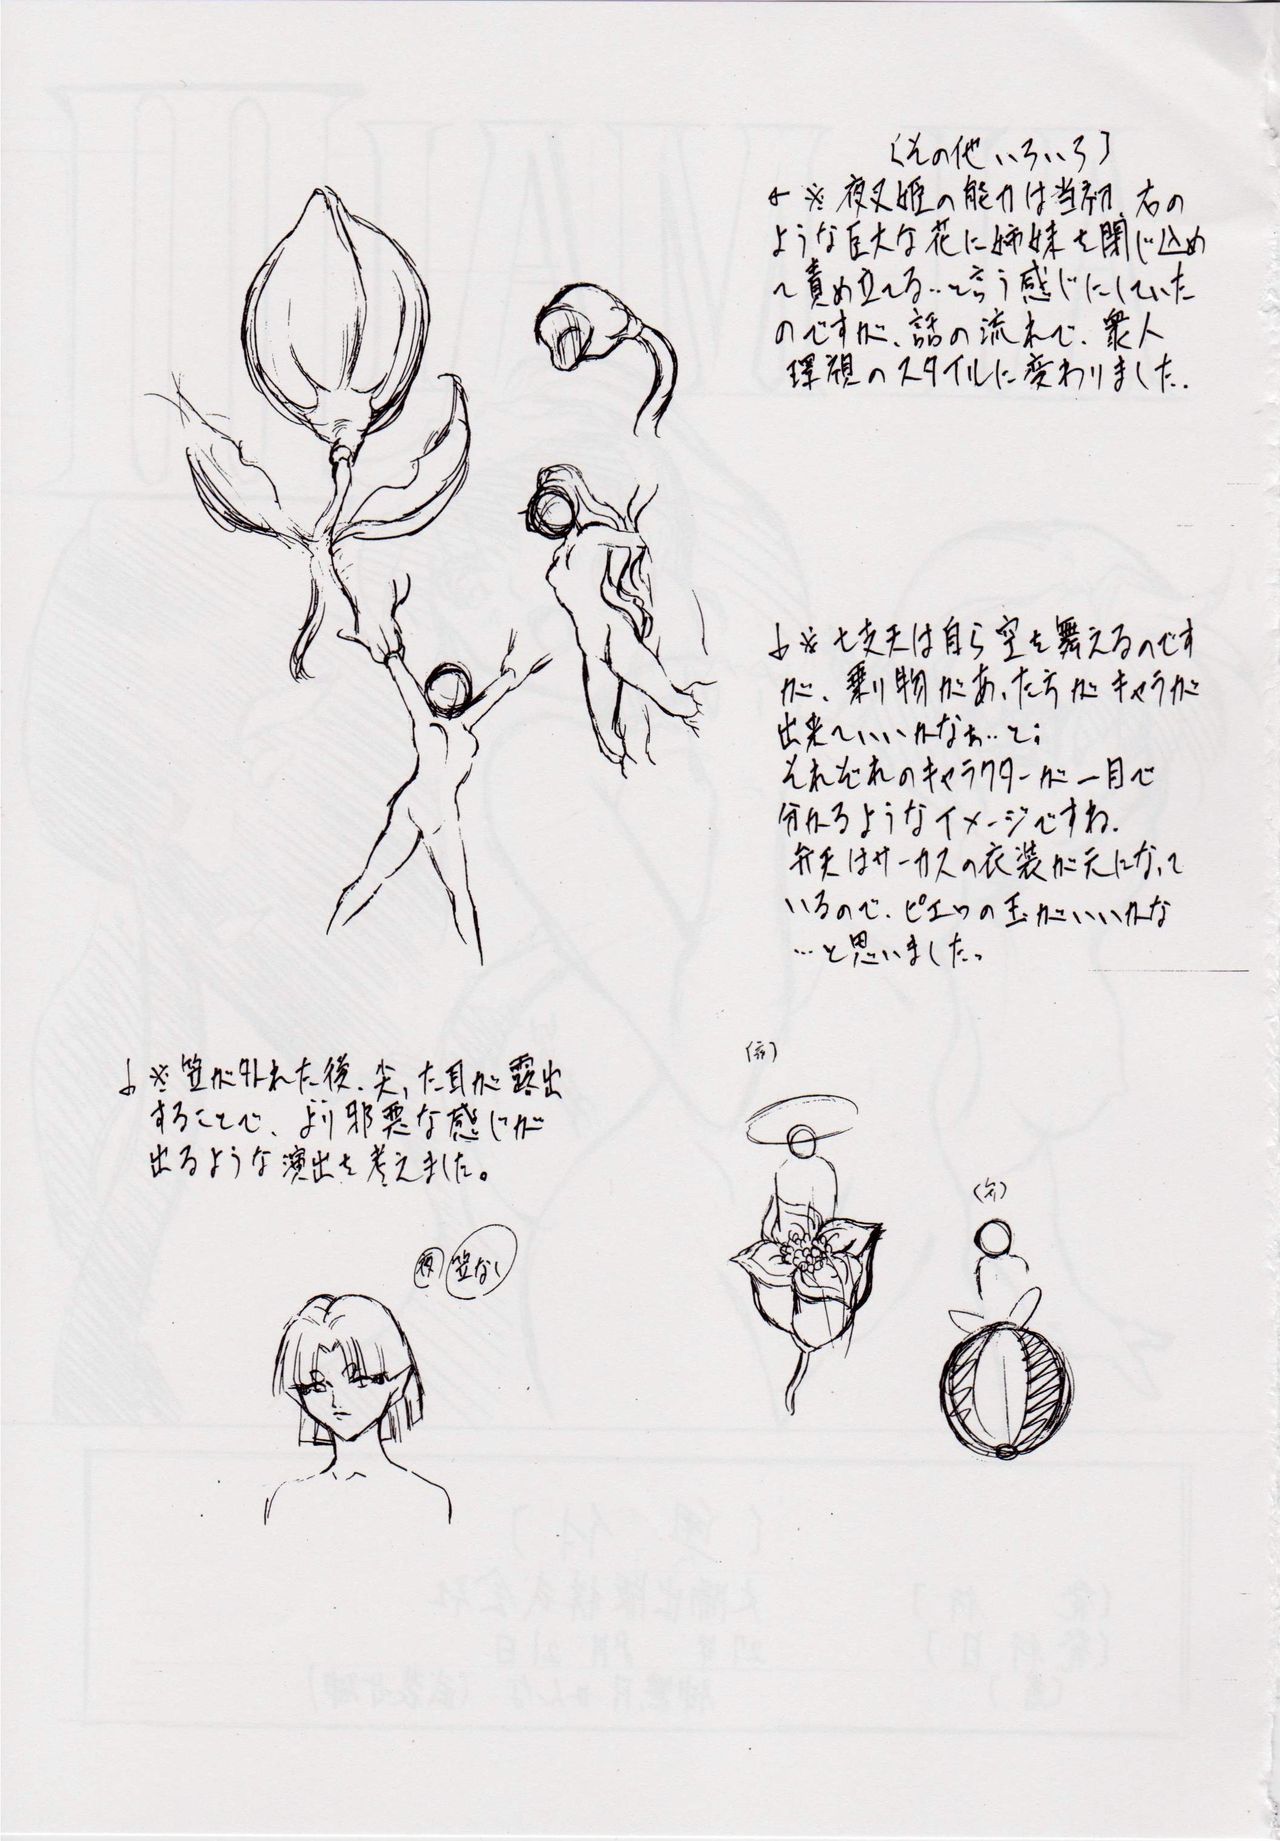 〔その他いろいろ〕
←※夜叉姫の能力は当初、右の
ような巨大な花に姉妹を閉じ込め
て責め立てる…と言う感じにしていた
のですが、話の流れで、衆人
環視のスタイルに変わりました.
↓※七支天は自ら空を舞えるのです
が、乗り物があったらがキャラが
出来ていいかなぁ…と;
それぞれのキャラクターが一目で
分かるようなイメージですね.
弁天はサーカスの衣装が元になって
いるので、ピエロの玉がいいかな
…と思いました。
↓※笠が外れた後、尖った耳が露出
することで、より邪悪な感じが
出るような演出を考えました。
夜 笠なし
(弁)